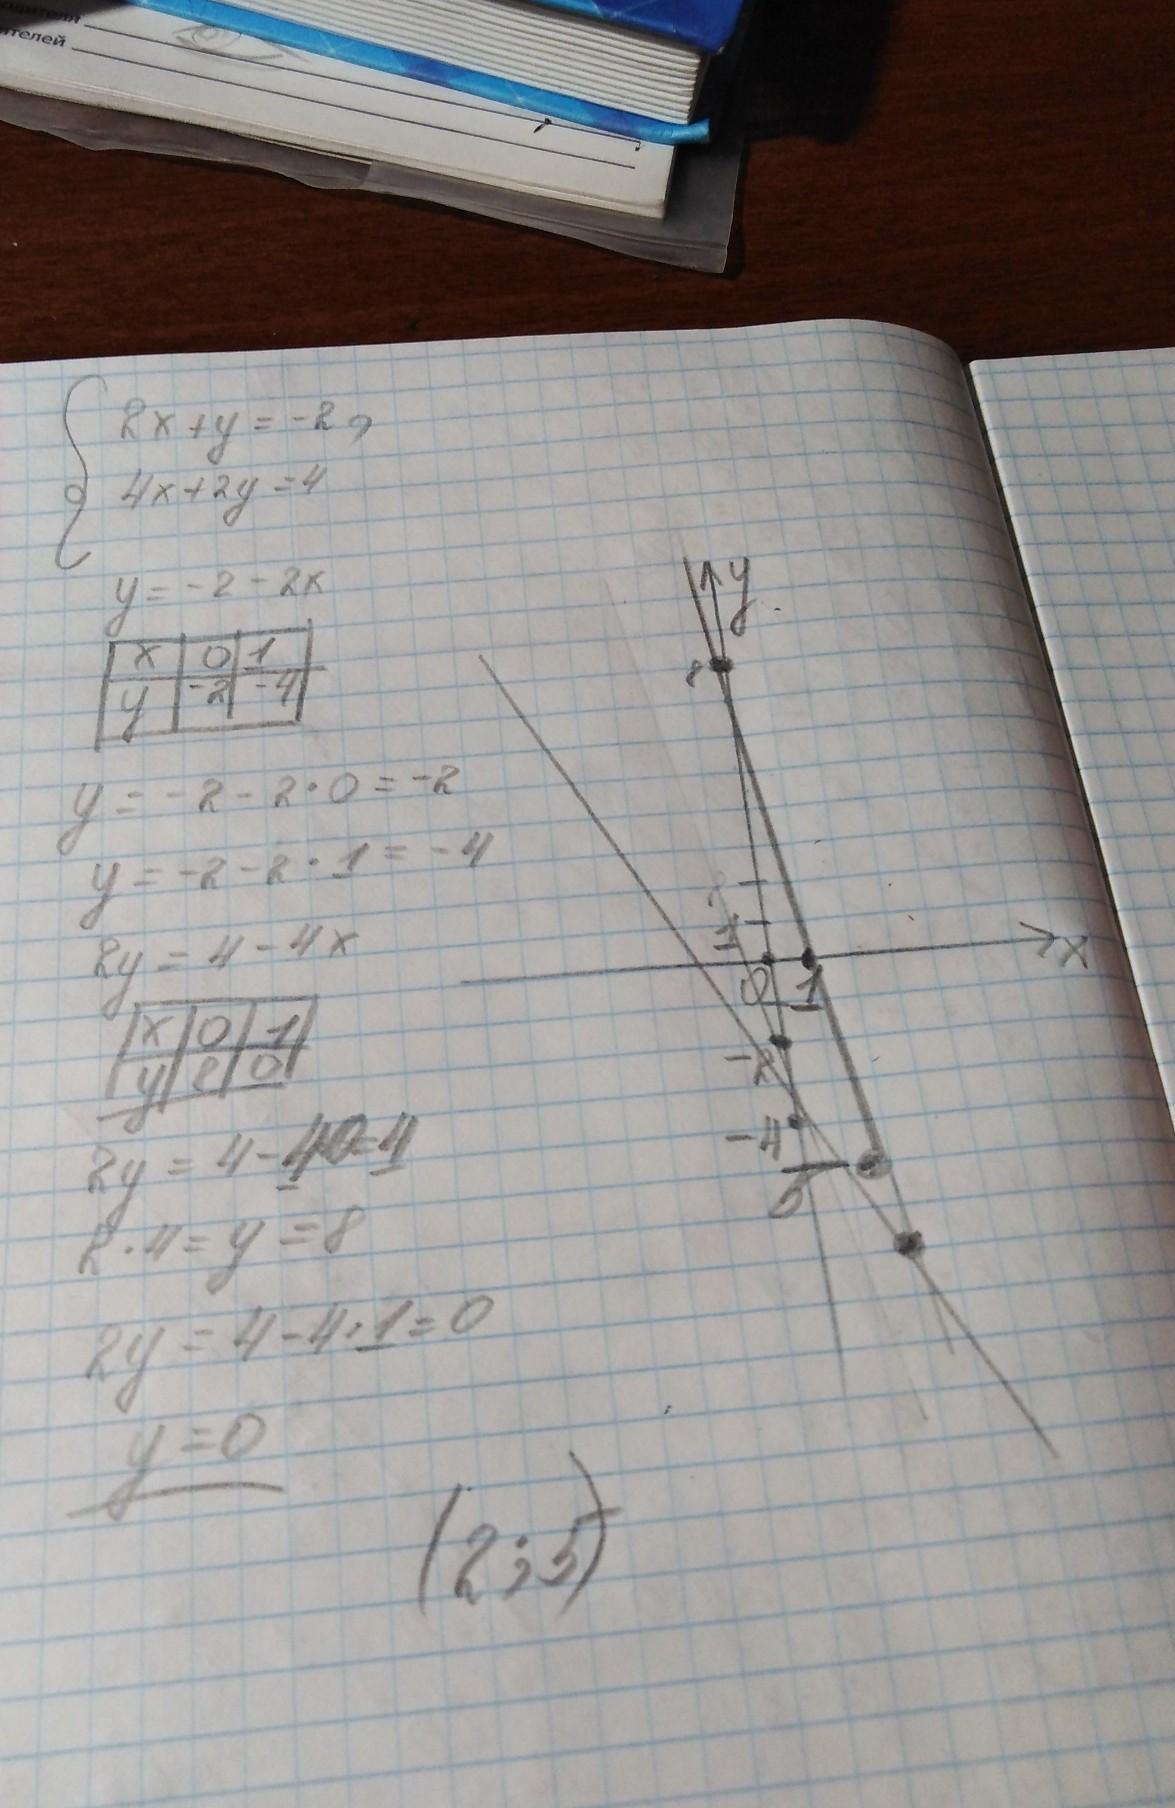 ителей
2x+y=-2,
4x+2y=4
y=-2-2x
x 0 1
y -2 -4
y=-2-2·0=-2
y=-2-2·1=-4
2y=4-4x
x 0 1
y 8 0
2y=4-40=4
2·4=y=8
2y=4-4·1=0
y=0
(2;5)
y
8
1
0
1
x
-2
-4
5